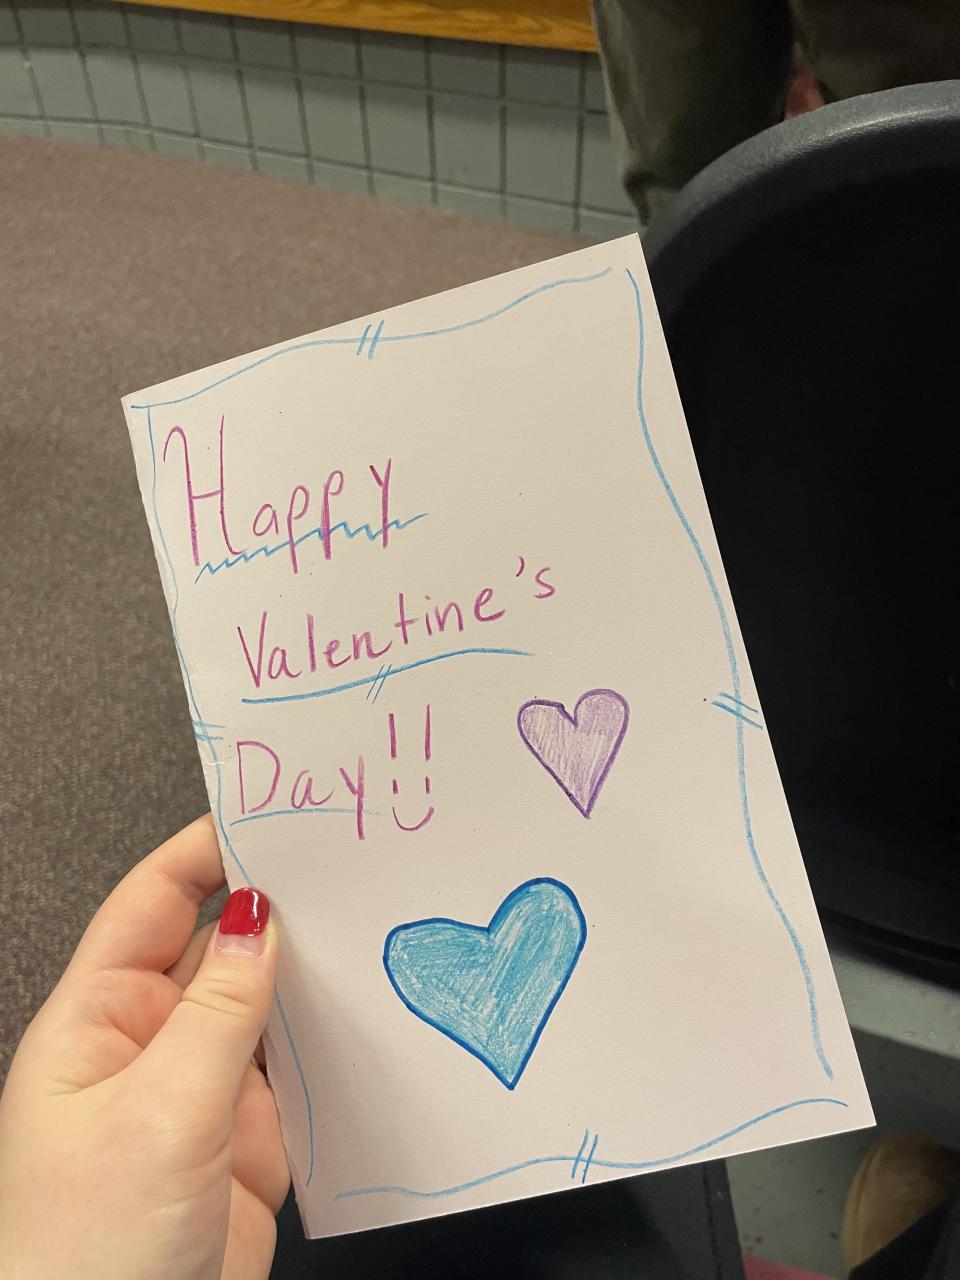 Happy
Valentine's
Day!!